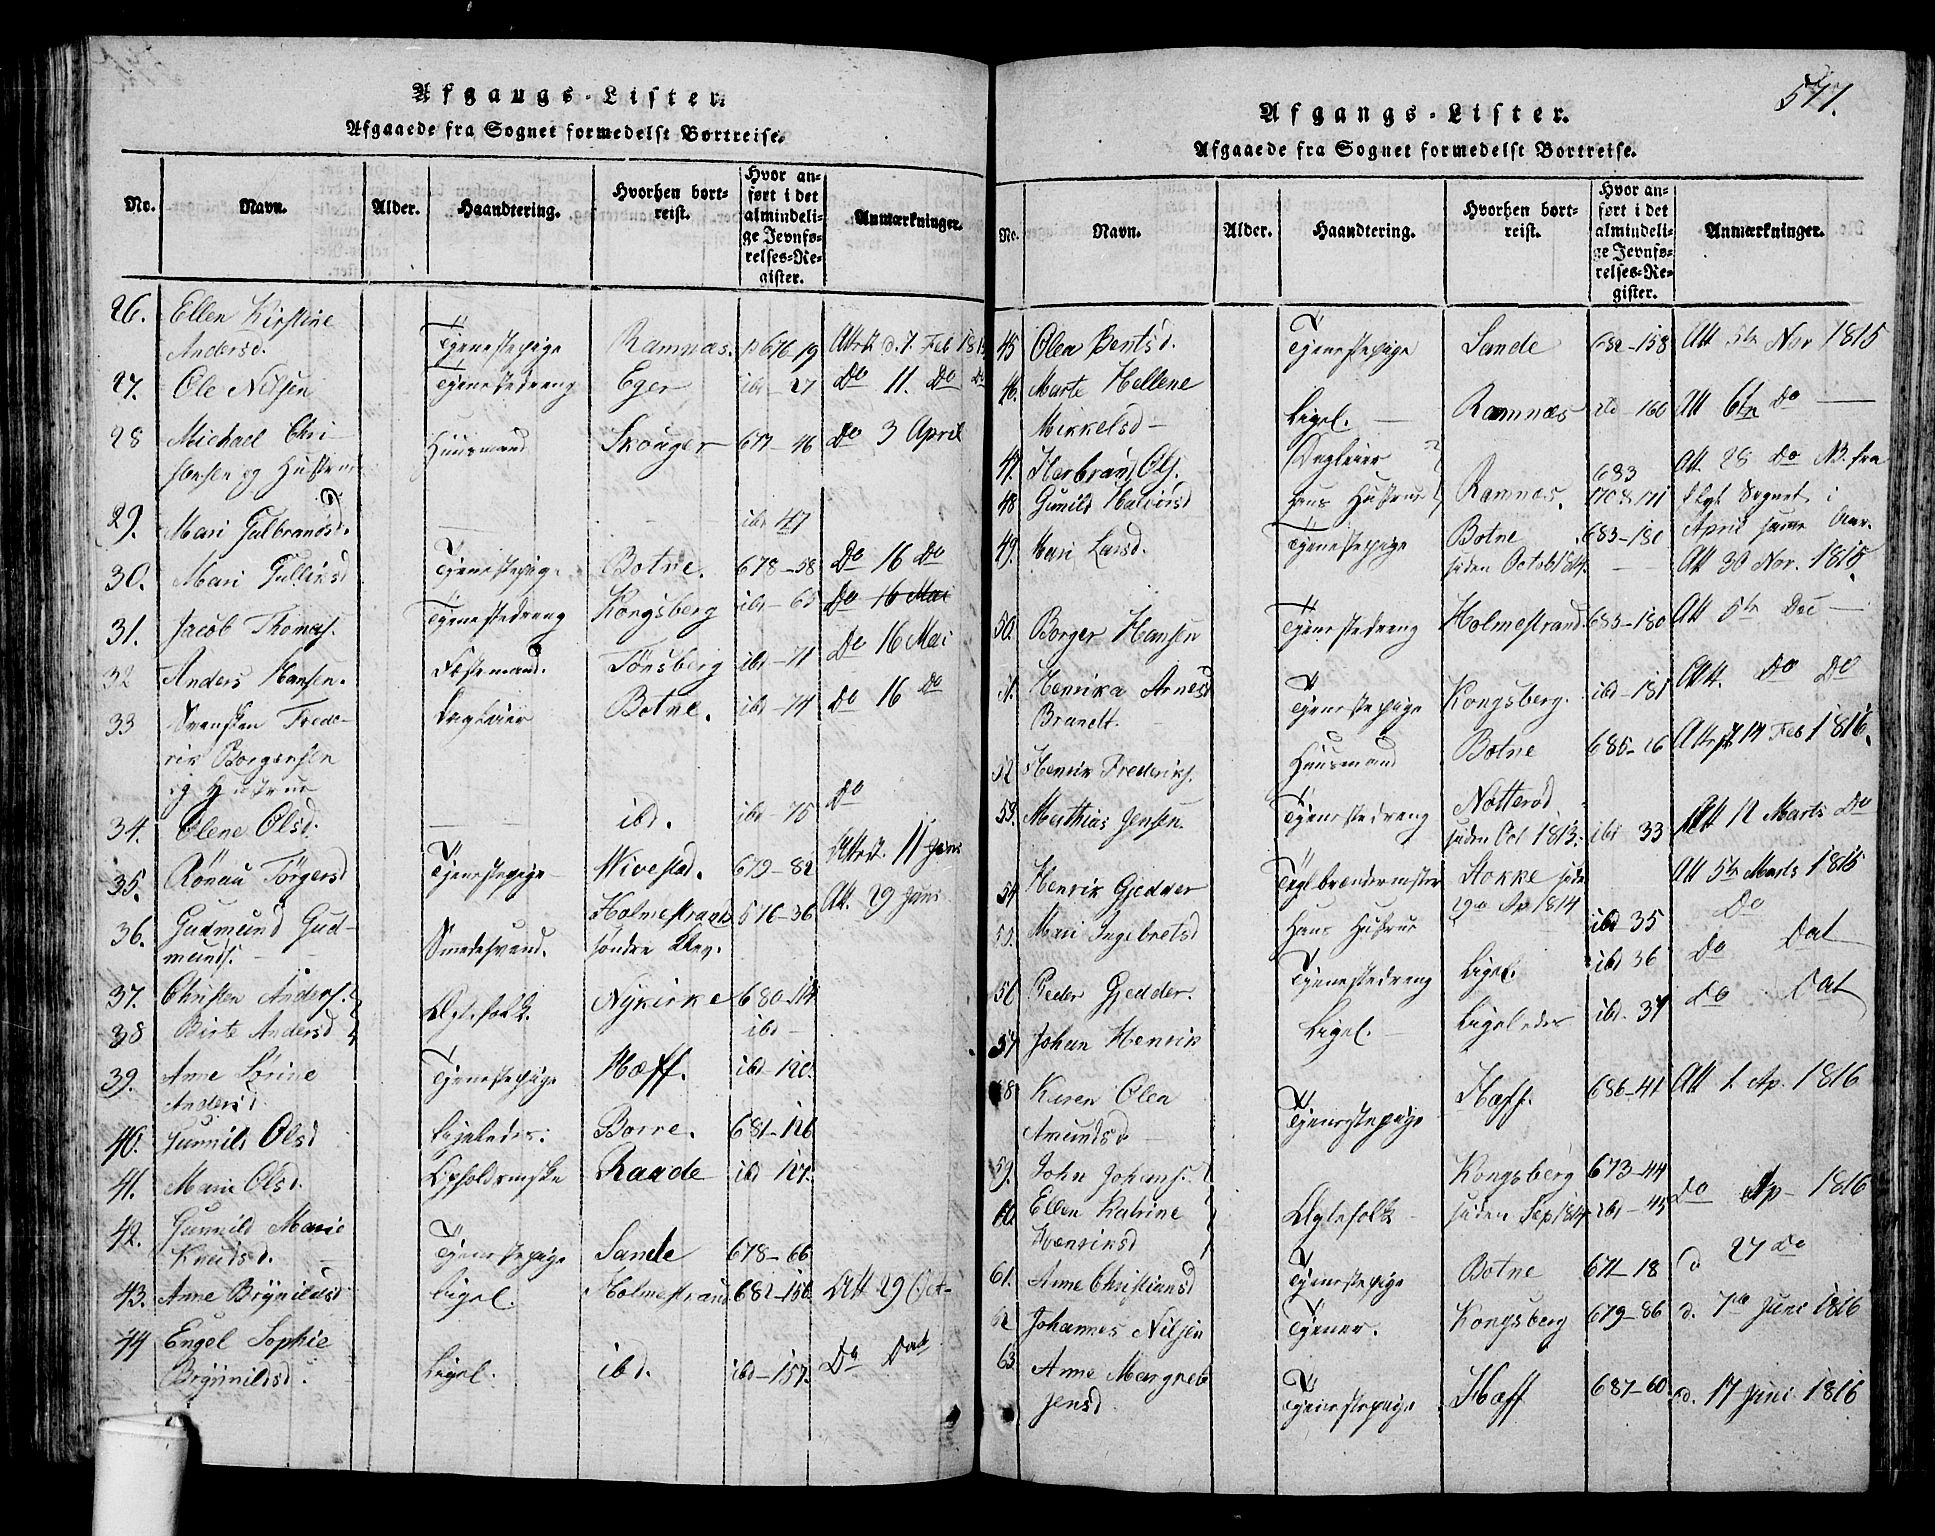 Afgangs-Lister.
Afgaaede fra Sognet formedelst Bortreise.
No. Navn. Alder. Haandtering. Hvorhen bortreist. Hvor anført i det almindelige Jevnførelses-Register. Anmærkninger.
26. Ellen Kirstine
Andersd. Tjenestepige Ramnæs. p 676-19 Attest d. 7 Feb 1815
27. Ole Nilsen Tjenestedreng Eger ibd - 27 Do 11. Do Do
28 Michael Chri-
stensen og Hustrue Huusmand Skouger 677-46 Do 3 April
29. Mari Gulbrandsd. ibd 47
30. Mari Gulliksd Tjenestepige Botne. 678-58 Do 16 Do
31. Jacob Thomæs. Tjenestedreng Kongsberg ibd - 65 Do 16 Mai
32 Anders Hansen. Fæstemand. Tønsberg ibd - 71 Do 16 Mai
33 Svensken Frede-
rik Borgersen
og Hustrue Leglæier Botne. ibd - 74 Do 16 Do
34. Olene Olsd. ibd. ibd - 75 Do
35. Rønau Törgersd Tjenestepige Hivestad. 679-82 Attest. 11 Juni
36. Gudmund Gud-
munds. Smedesvend. Holmestrand søndre 576-36 Att. 29 Juni
37. Christen Anders. Ægtefolk. Nykirke 680-114
38 Birte Andersd ibd -
39. Anne Lorine
Andersd Tjenestepige Hæff. ibd - 120.
40. Gunnild Olsd Ligeledes. Borre. 681-126
41. Marie Olsd. Raade ibd 127.
42. Gunnild Marie
Knudsd. Tjenestepige Sande 678-66
43. Anne Brynildsd Ligel. Holmestrand 682-156 Att 29 Oct.
44 Engel Sophie
Brynnildsd. Ligel. ibd. ibd - 157. Do Dat
577.
Afgangs-Lister.
Afgaaede fra Sognet formedelst Bortreise.
No. Navn. Alder. Haandtering. Hvorhen bortreist. Hvor anført i det almindelige Jevnførelses-Register. Anmærkninger.
45 Olea Bentsd. Tjenestepige Sande 682-158 Att 5te Nov 1815
46. Marte Hellene
Mikkelsd - Ligel. - Ramnæs ibd - 160 Att 6te Do -
47. Herbrand Ols. Leglæier 683 Att. 28 Do NB. fra
48 Gunild Halvorsd hans Hustrue Ramnæs. 170 & 171 flyt Sognet i
49. Kari Larsd. Tjenestepige Botne 683-180 April samme Aar.
siden Octob 1814. Att 30 Nov. 1815
50. Borger Hansen Tjenestedreng Holmestrand 683-180 Att 5te Dec -
51. Henrika Arnesd
Brandt. Tjenestepige Kongsberg. ibd - 181 Att. Do Do
52 Henrik Frederiks. Huusmand Botne 685-16 Attest 14 Feb 1816.
53. Matthias Jensen. Tjenestedreng Nøtterød
siden Oct 1813. ibd 33 Att 12 Marts Do
54 Henrik Gjedder Teglbrændermester Stokke siden
29 Ap 1814 Att 5te Marts 1815
55. Mari Ingebretsd Hans Hustrue ibd 35 Do
56 Peder Gjedder. Tjenestedreng Ligel. ibd 36 Do Dat
57 Johan Henrik Ligel. - Ligeledes ibd. 37 Do Dat
58 Karen Olea
Amundsd - Tjenestepige Hæff. 686-41 Att 1. Ap. 1816
59. John Johans. Kongsberg 673-44
60. Ellen Katrine
Henriksd Ægtefolk - siden Sep 1814 ibd - 45 Do Ap - 1816
61. Anne Christiansd Tjenestepige Botne 671-18 d 27 Do
62 Johannes Nilsen Tjener. Kongsberg 679-86 d. 7de Juni 1816
63. Anne Margrete
Jensd. Tjenestepige Hæff 687-60. d. 17 Juni 1816